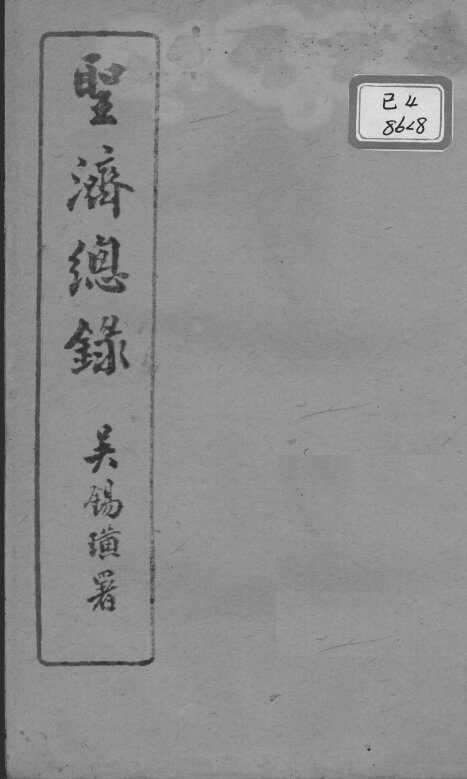 聖濟總錄
吳錫璜署
已4
8628